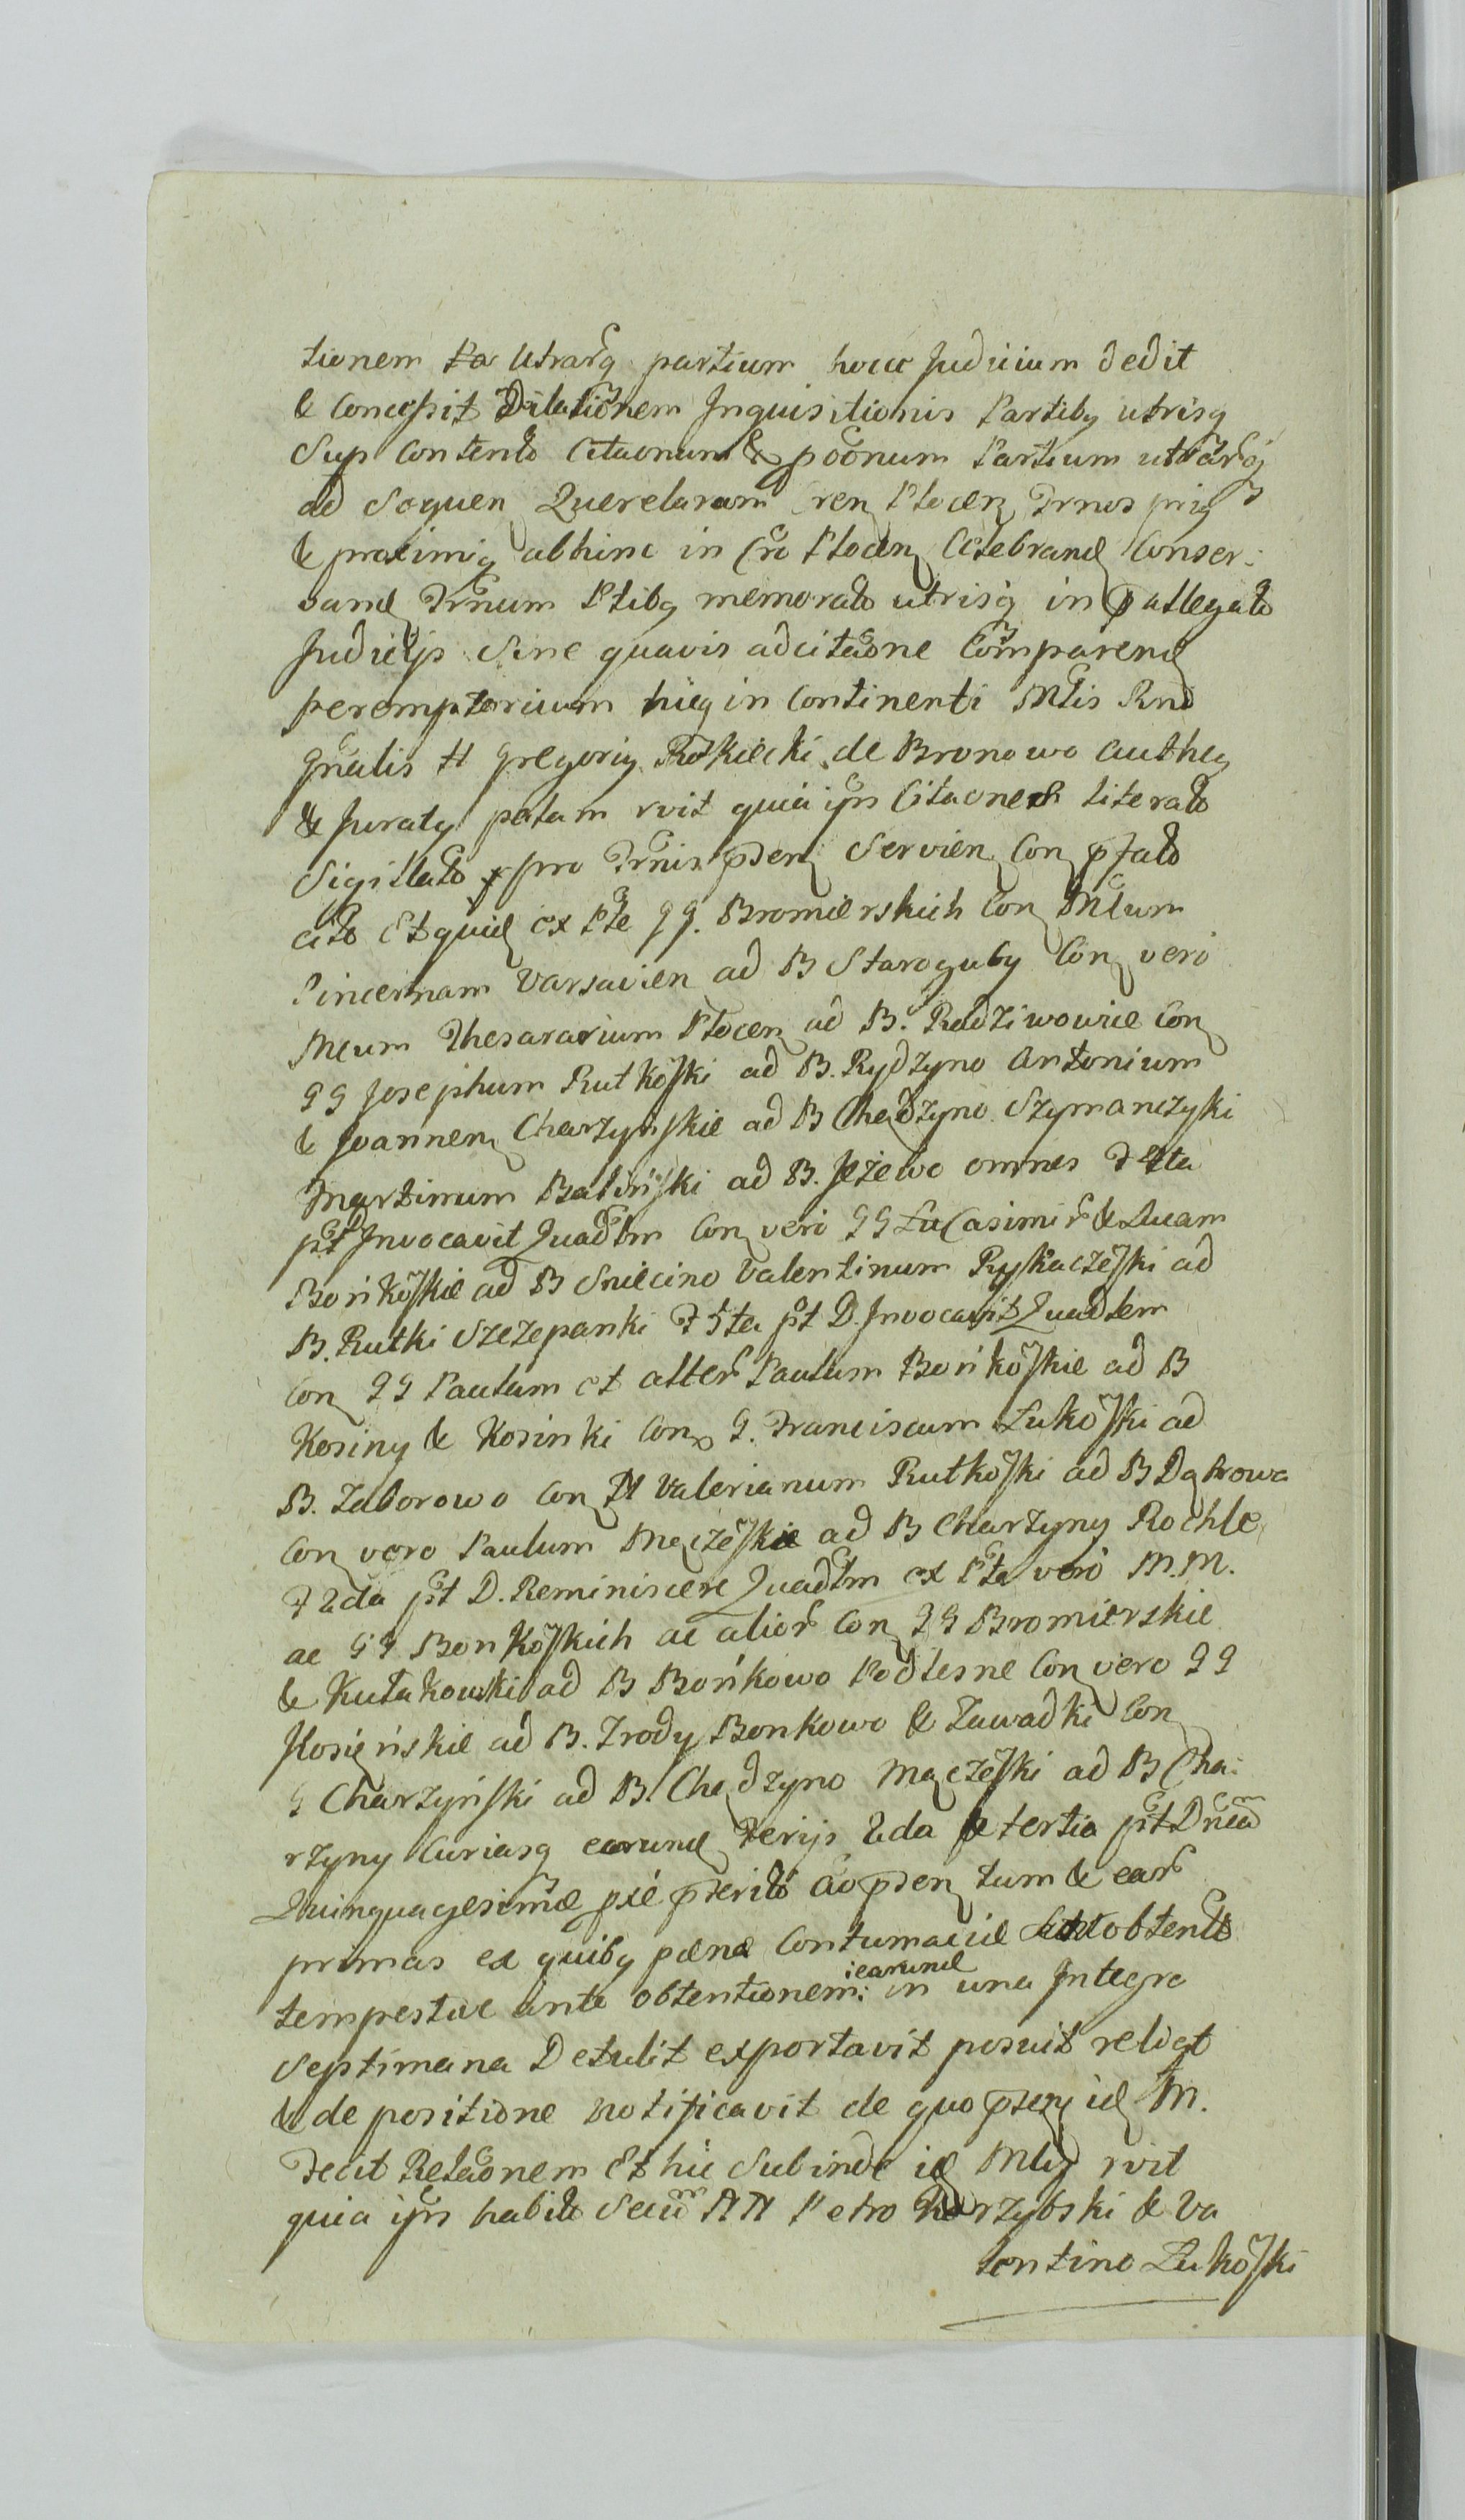 tionem Utrarq partium hocce Judicium dedit
& Concessit Dilationem Inquisitionis Partibq utrisq
Sup Contento Citaonum & pōōnum Partium utrarq
ad Sequen Querelarum Cren Plocen Trnos priq
& proximiq abhinc in Cro Plocen Celebrand Conser:
vand Trnum Ptibq memorato utrisq in allegato
Judicijs Sine quavis adcitaone Comparend
peremptorium hicq in Continenti Mtis Rnd
Gnalis H Gregoriq Rościecki de Bronowo authen
& Juratq palam rvit quia ijs Citaones literato
Sigillato pro Trnis pden Servien Con pfato
cito Et quid ex Pte GG. Bromierskich Con Mlum
Pincernam Varsavien ad B Staroguby Con vero
Mcum Thesaurarium Plocen ad B. Radziwowice Con
GG Josephum Rutkoski ad B. Rydzyno Antonium
& Joannem Charzyńskie ad B Chądzyno Szymanczyski
Martinum Baliński ad B. Jeżewo omnes F 4ta
pt Invocavit Quadtm Con vero GG Casimir & Lucam
Bońkoskie ad B Sniecino Valentinum Ryskaczeski ad
B. Rutki Szczepanki F 5ta pt D. Invocavit Quadlem
Con GG Paulum et alter Paulum Bońkoskie ad B
Kosiny & Kosinki Con G. Franciscum Lukoski ad
B. Zaborowo Con N Valerianum Rutkoski ad B Dąbrowa
Con vero Paulum Mączeskie ad B Charzyny Rochle
F 2da pt D. Reminiscere Quadtm ex Pte vero M.M.
ac GG Bonkoskich ac alior Con GG Bromierskie
& Kutakowski ad B Bońkowo Podlesne Con vero GG
Kosieńskie ad B. Zrody Bonkowo & Zawadki Con
G Charzyński ad B Chądzyno Mączeski ad B Cha:
rzyny Curiasq earund Ferijs 2da & tertia pt Dnca
Quinquagesimæ pxe pterito ao pden tum & ear
primas ex quibq pœnæ Contumaciæ obtento
tempestive ante obtentionem: in una Integra
:earund
Septimana Detulit exportavit posuit reliqt
& de positione notificavit de quo pden id M.
Fecit Relaonem Et hic Subinde id Mlis rvit
quia ijs habito Secu NN Petro Karzybski & Va
lentino Lukoski